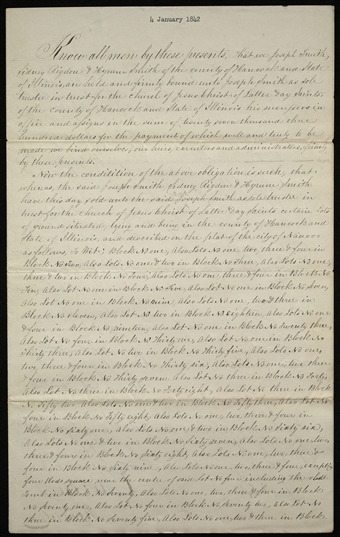 4 January 1842
Know all men by these presents, that we Joseph Smith,
Sidney Rigdon & Hyrum Smith of the county of Hancock and State
of Illinois, are held and firmly bound unto Joseph Smith as sole
trustee in trust for the church of Jesus Christ of Latter Day Saints
of the county of Hancock and State of Illinois his successors in
office and assigns in the sum of twenty seven thousand
hundred dollars for the payment of which well and truly to be
made we bind ourselves, our heirs, executors and administrators, firmly
by these presents.
Now the condidition of the above obligation is such, that
whereas, the said Joseph Smith Sidney Rigdon & Hyrum Smith
have this day sold unto the said Joseph Smith as sole trustee in
trust for the Church of Jesus Christ of Latter Day Saints certain lots
of ground situated, lying and being in the county of Hancock and
State of Illinois, and described on the plat of the city of Nauvoo
as follows, to Wit: Block No one, Also Lots No one, two, three & four in
Block No two, Also Lots No one & two in Block No three, Also Lots No one,
three & two in Block No four, Also Lots No one, three & four in Block No
Also Lot No one in Block No five, Also Lot No one in Block No
Also Lot No one in Block No nine, Also Lots No one, two & three in
Block No eleven, Also Lot No two in Block No eighteen, Also Lots No one
& four in Block No nineteen, Also Lot No one in Block No twenty three,
Also Lot No four in Block No thirty one, Also Lot No one in Block No
thirty three, Also Lot No two in Block No thirty five, Also Lots No one,
two, three & four in Block No thirty six, Also Lots No one, two, three &
four in Block No thirty seven, Also Lot No three in Block No forty,
Also Lot No three in Block No forty eight, Also Lot No three in Block
No fifty two, Also Lots No one & two in Block No fifty three, Also Lot No
four in Block No fifty eight, Also Lots No one, two, three & four in
Block No sixty one, Also Lots No one & two in Block No sixty six,
Also Lots No one & two in Block No sixty seven, Also Lots No one, two,
three & four in Block No sixty eight, Also Lots No one, two, three &
four in Block No sixty nine, Also Lots No one, two, three & four, except
four Rods square near the centre of said Lot No four including the
in Block No seventy, Also Lots No one, two, three & four in Block
No seventy one, Also Lot No four in Block No seventy two, Also Lot No
three in Block No seventy five, Also Lots No one, two & three in Block